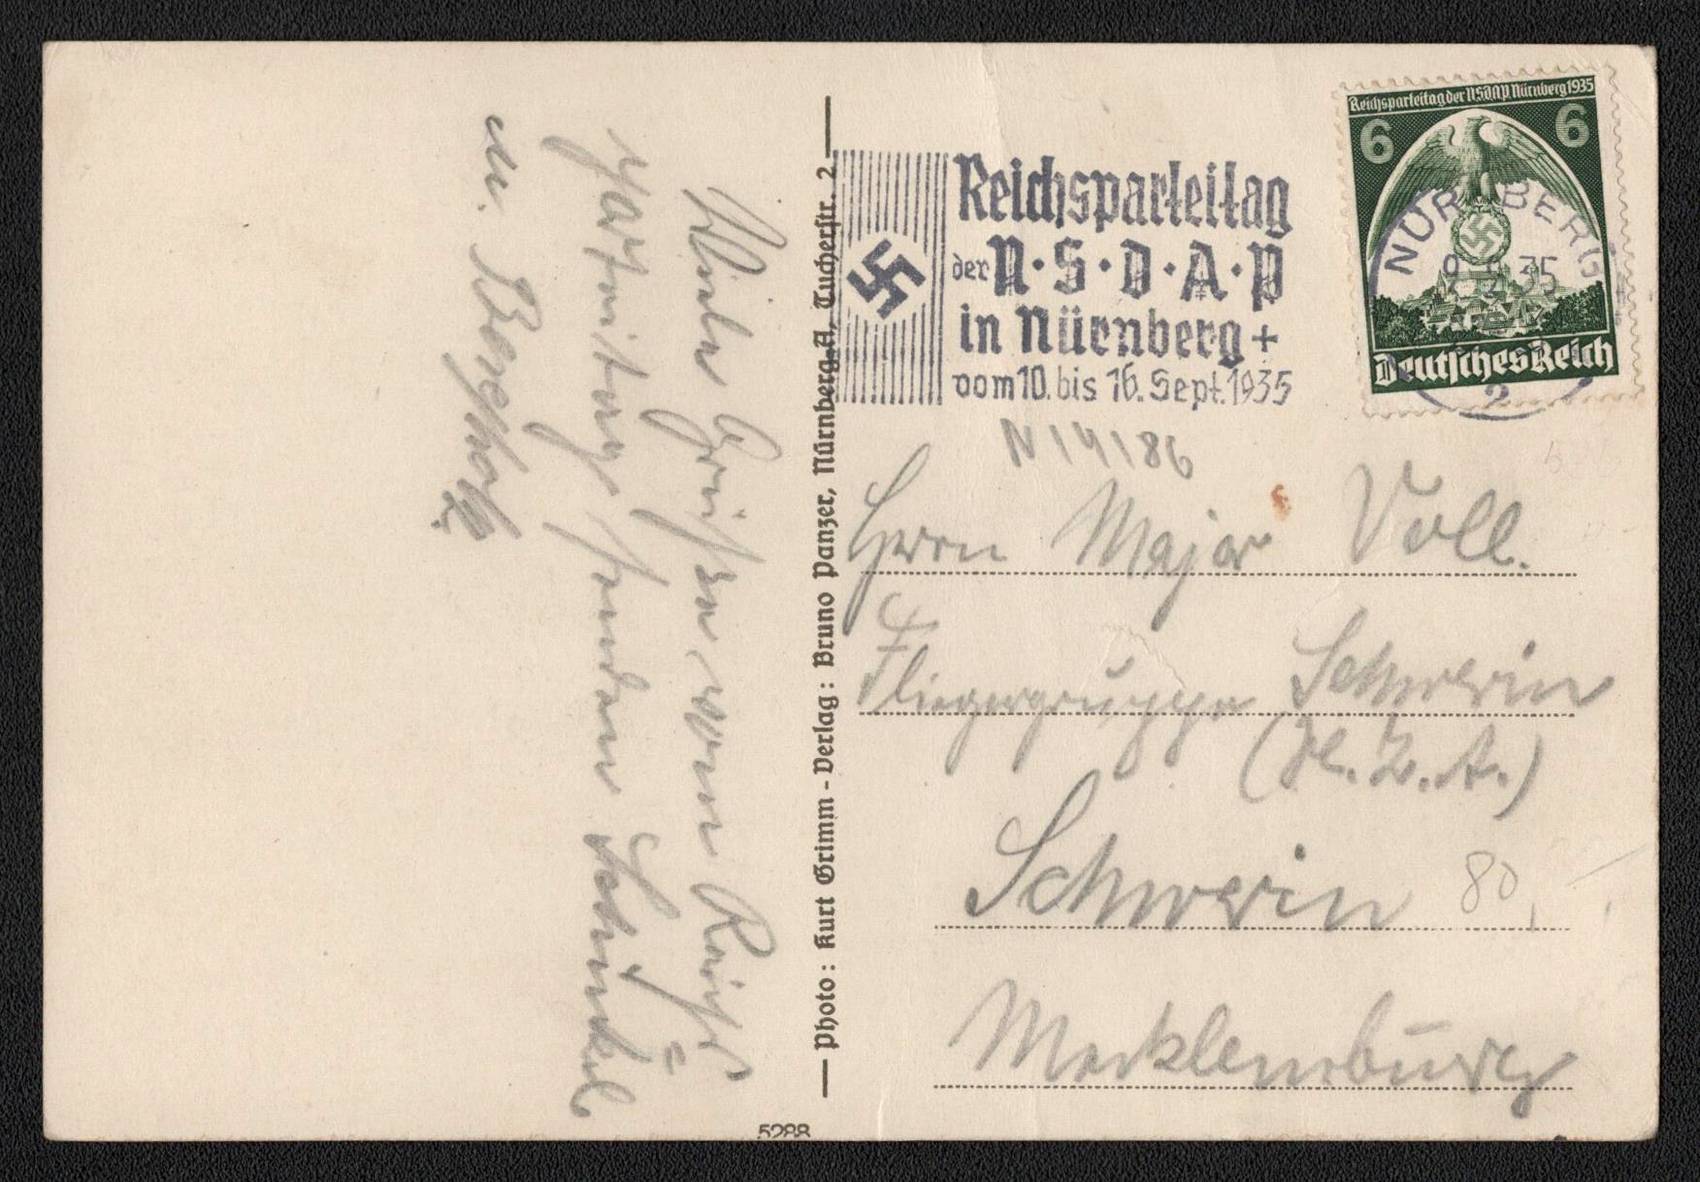 Viele Grüße vom Reichs=
parteitag senden Schinkel
u. Bergholz.
Photo: Kurt Grimm - Verlag: Bruno Panzer, Nürnberg-A, Tucherstr. 2
5288
Reichsparteitag
der N·S·D·A·P
in Nürnberg +
vom 10. bis 16. Sept. 1935
Reichsparteitag der NSDAP Nürnberg 1935
6 6
NÜRNBERG
9.35
Deutsches Reich
2
N 14186
Herrn Major Voll.
Fliegergruppe Schwerin
Schwerin
80,
Mecklemburg